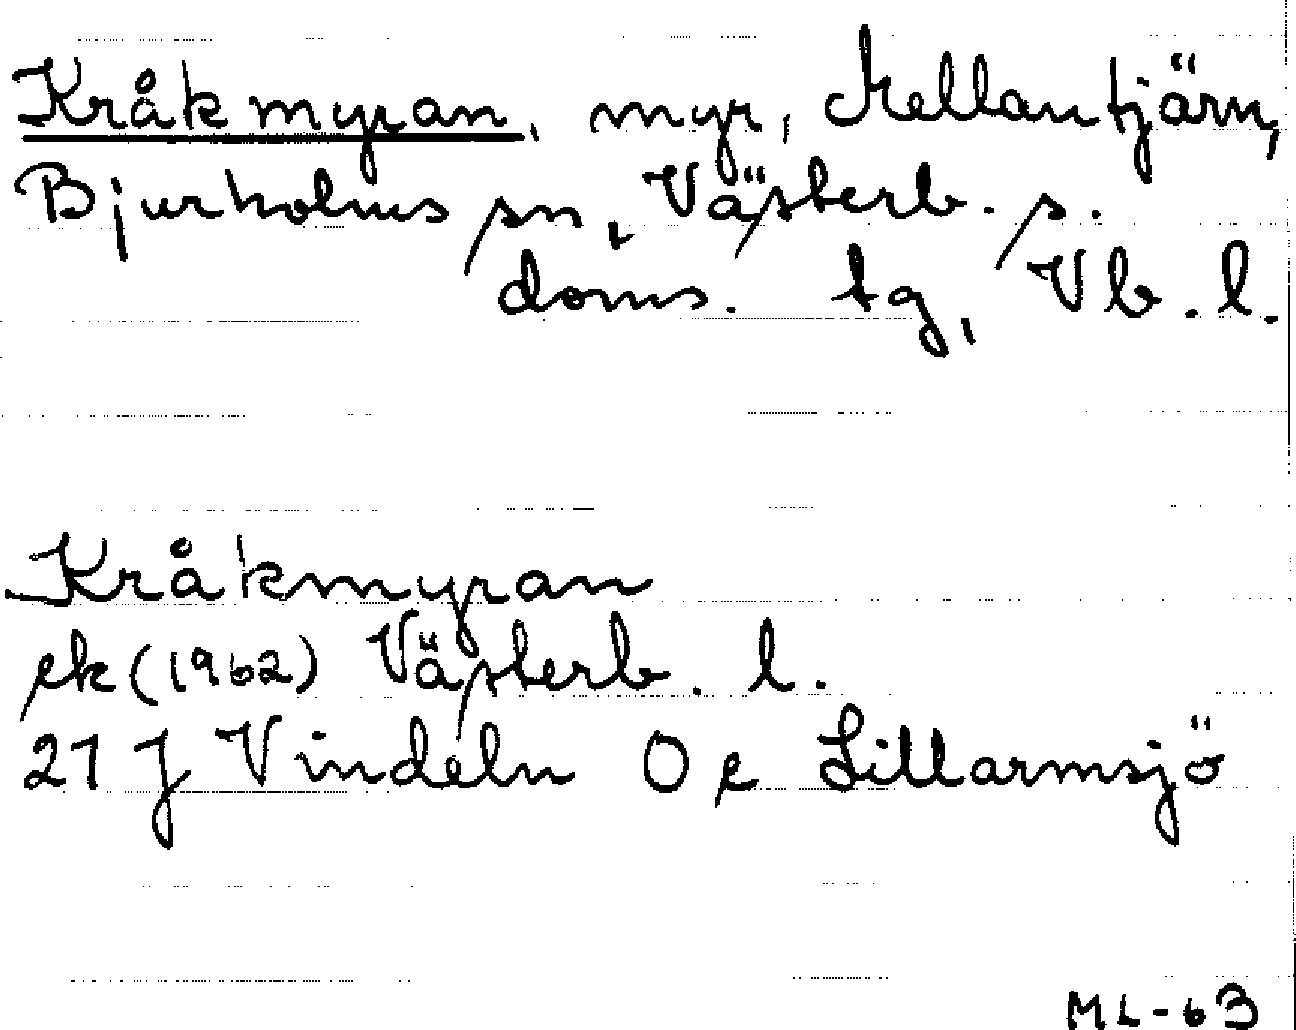 Kråkmyran, myr, Mellantjärn,
Bjurholms sn, Västerb. s.
doms. tg, Vb. l.
Kråkmyran
ek (1962) Västerb. l.
21 J Vindeln 0 e Lillarmsjö
ML-63